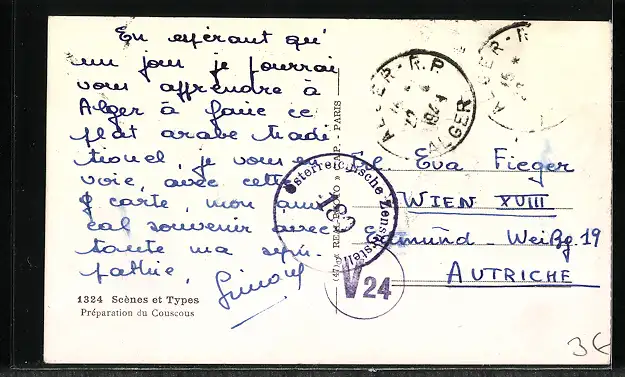 En espérant qu'
un jour je pourrai
vous apprendre à
Alger à faire ce
plat arabe tradi-
tionel, je vous en-
voie, avec cette
carte, mon ami-
cal souvenir avec
toute ma sym-
pathie,
1324 Scènes et Types
Préparation du Couscous
"REAL-PHOTO" PARIS
ALGER-R.P.
ALGER
ALGER-R
Österreichische Zensurstelle
183
V24
Eva Fieger
WIEN XVIII
Weißg. 19
AUTRICHE
3€